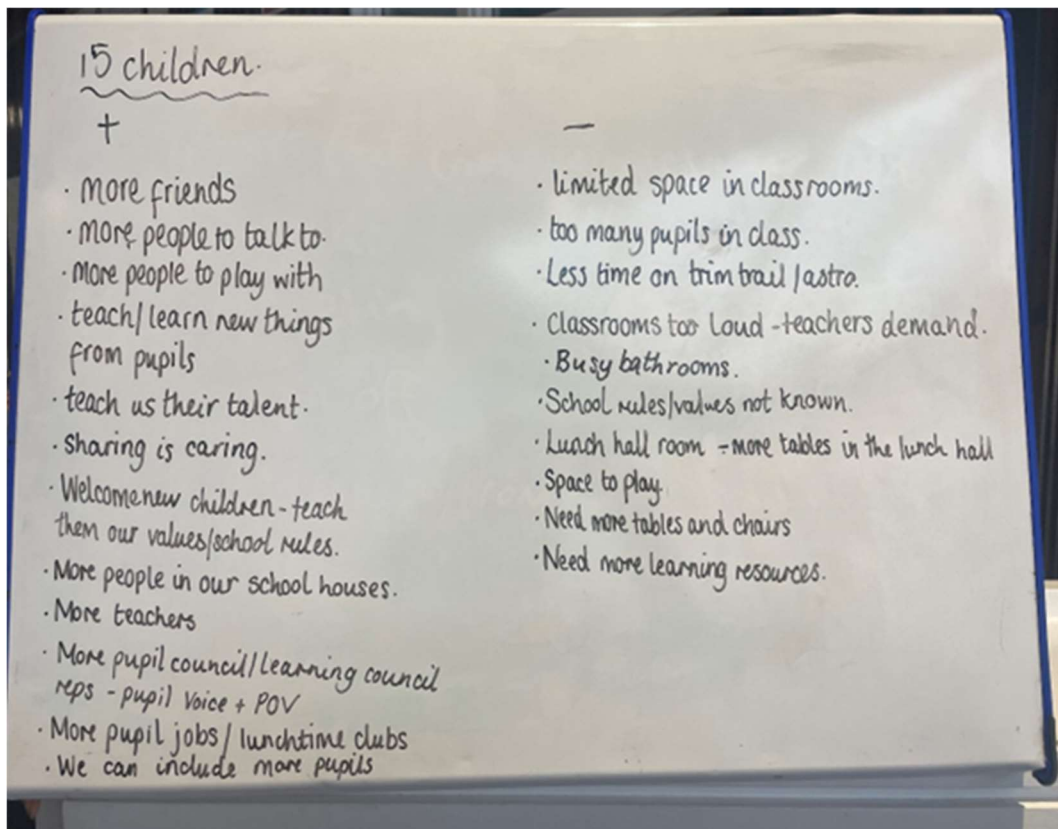 15 children.
+
· more friends
· more people to talk to.
· more people to play with
· teach/learn new things
from pupils
· teach us their talent.
· Sharing is caring.
· Welcome new children - teach
them our values/school rules.
· More people in our school houses.
· More teachers
· More pupil council/learning council
reps - pupil Voice + POV
· More pupil jobs/lunchtime clubs
· We can include more pupils
-
· limited space in classrooms.
· too many pupils in class.
· Less time on trim trail/astro.
· Classrooms too Loud - teachers demand.
· Busy bathrooms.
· School rules/values not known.
· Lunch hall room - more tables in the lunch hall
· Space to play.
· Need more tables and chairs
· Need more learning resources.